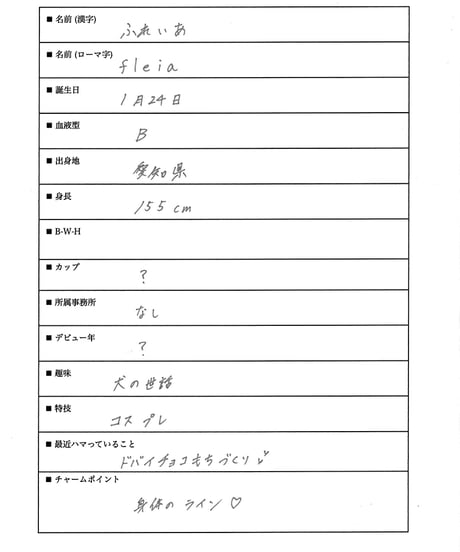 ■ 名前 (漢字)
ふれいあ
■ 名前 (ローマ字)
fleia
■ 誕生日
1月24日
■ 血液型
B
■ 出身地
愛知県
■ 身長
155cm
■ B-W-H
■ カップ
?
■ 所属事務所
なし
■ デビュー年
?
■ 趣味
犬の世話
■ 特技
コスプレ
■ 最近ハマっていること
ドバイチョコもちづくり
■ チャームポイント
身体のライン♡